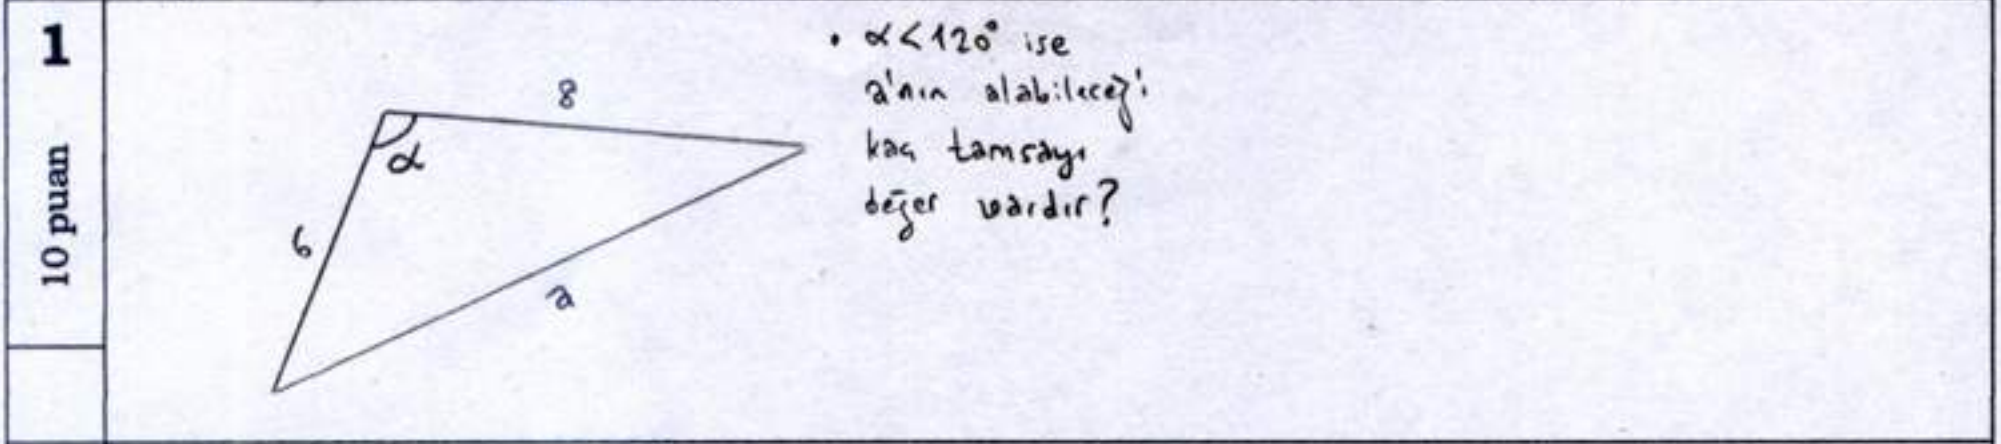 1
10 puan
8
α
6
a
• α<120° ise
a'nın alabileceği
kaç tamsayı
değer vardır?